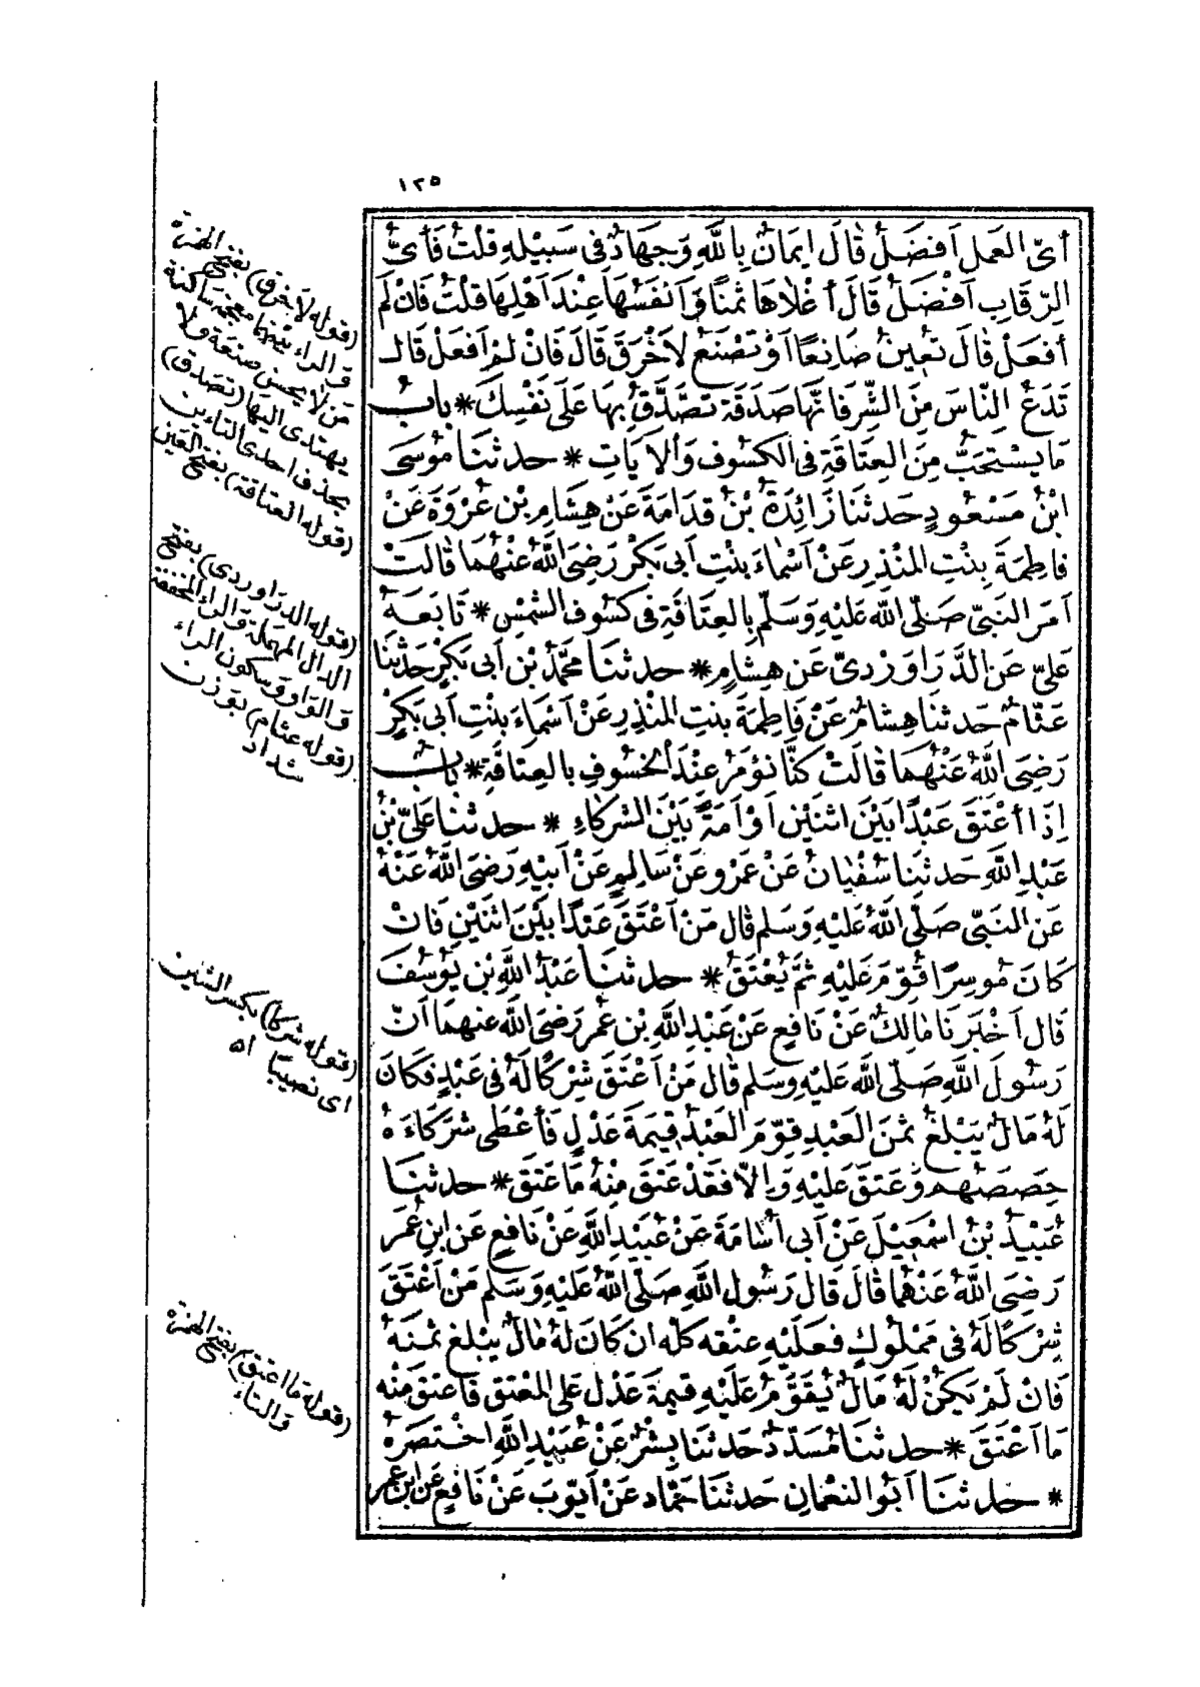 ١٢٥
أىّ العمل أفضل قال إيمان بالله وجهاد فى سبيله قلت فأىّ
الرّقاب أفضل قال أغلاها ثمنا وأنفسها عند أهلها قلت فان لم
أفعل قال تعين صانعا أو تصنع لأخرق قال فان لم أفعل قال
تدع النّاس من الشّرّ فانّها صدقة تصّدّق بها على نفسك * باب
ما يستحبّ من العتاقة فى الكسوف والآيات * حدثنا موسى
ابن مسعود حدثنا زائدة بن قدامة عن هشام بن عروة عن
فاطمة بنت المنذر عن أسماء بنت أبى بكر رضى الله عنهما قالت
أمر النبىّ صلّى الله عليه وسلّم بالعتاقة فى كسوف الشمس * تابعه
علىّ عن الدّراوردىّ عن هشام * حدثنا محمّد بن أبى بكر حدثنا
عثّام حدثنا هشام عن فاطمة بنت المنذر عن أسماء بنت أبى بكر
رضى الله عنهما قالت كنّا نؤمر عند الخسوف بالعتاقة * باب
إذا أعتق عبدا بين اثنين أو أمة بين الشركاء * حدثنا علىّ بن
عبد الله حدثنا سفيان عن عمرو عن سالم عن أبيه رضى الله عنه
عن النبىّ صلّى الله عليه وسلم قال من أعتق عبدا بين اثنين فان
كان موسرا قوّم عليه ثمّ يعتق * حدثنا عبد الله بن يوسف
قال أخبرنا مالك عن نافع عن عبد الله بن عمر رضى الله عنهما أنّ
رسول الله صلّى الله عليه وسلم قال من أعتق شركا له فى عبد فكان
له مال يبلغ ثمن العبد قوّم العبد قيمة عدل فأعطى شركاءه
حصصهم وعتق عليه وإلّا فقد عتق منه ما عتق * حدثنا
عبيد بن اسمعيل عن أبى أسامة عن عبيد الله عن نافع عن ابن عمر
رضى الله عنهما قال قال رسول الله صلّى الله عليه وسلم من أعتق
شركا له فى مملوك فعليه عتقه كله ان كان له مال يبلغ ثمنه
فان لم يكن له مال يقوّم عليه قيمة عدل على المعتق فأعتق منه
ما أعتق * حدثنا مسدّد حدثنا بشر عن عبيد الله اختصره
* حدثنا أبو النعمان حدثنا حمّاد عن أيّوب عن نافع عن ابن عمر
(قوله لأخرق) بفتح الهمزة
والراء بينهما معجمة ساكنة
من لا يحسن صنعة ولا
يهتدى اليها (تصدق)
بحذف احدى التاءين
(قوله العتاقة) بفتح العين
(قوله الدراوردى) بفتح
الدال المهملة والراء المخففة
والواو وسكون الراء
(قوله عثام) بوزن
شداد
(قوله شركا) بكسر الشين
اى نصيبا اه
(قوله ما اعتق) بفتح الهمزة
والتاء